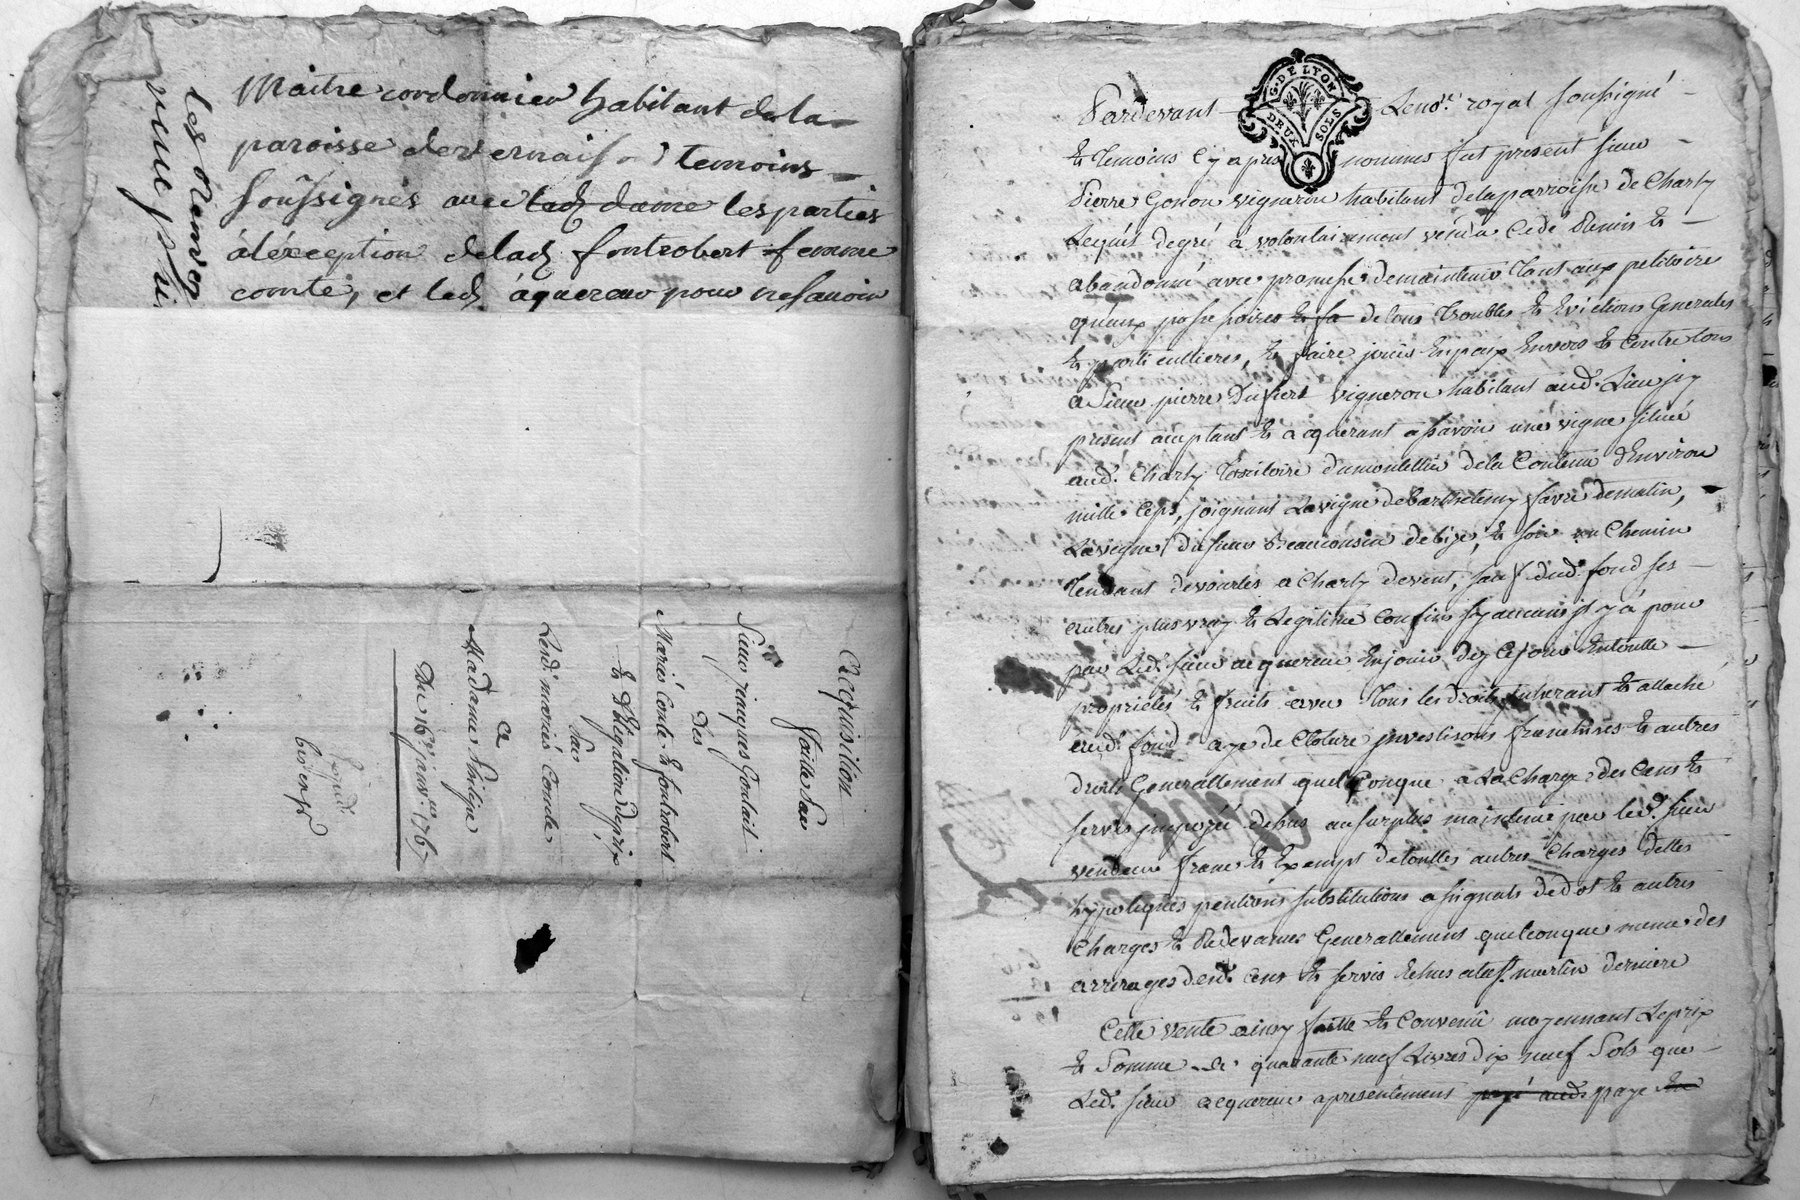 Maitre cordonnier habitant de la
paroisse de vernaison temoins
soussignés avec lad dame les parties
à l'éxception de lad fontrobert femme
comte, et led âquereur pour ne sauoir
les Renvoy
Acquisition
faitte par
Sieur jacques Goulait
Des
Mariés Conte & fontrobert
Et Délégation de prix
Par
Lesd. mariés Comte
a
Madame Philipe
Du 16e janv.er 176
G. DE LYON
DEUX SOLS
Pardevant Le no.re royal soussigné
& temoins cy apres nommés fut present sieur
Pierre Gonon vigneron habitant de la parroisse de Charly
Lequel de gré a volontairement vendu cedé Remis &
abandonné avec promesse de maintenir tant aux petitoire
qu'aux possessoires & sa de tous troubles & Evictions Generales
& particullieres, & faire jouir En paix Envers & contre tous
a Sieur pierre Dufiert vigneron habitant aud. Lieu jcy
present acceptant & acquerant a sçavoir une vigne située
aud. Charly Territoire du montellier de la Contenue d'Environ
mille Ceps, joignant La vigne de Barthelemy favre de matin,
La vigne du sieur Beaucousin de bize, & soir un Chemin
Tendant de vourles a Charly de vent, sauf dud. fond ses
autres plus vray & Legitime confins sy aucuns jl y à pour
par Led. sieur acquereur En jouir dez Ce jour En toutte
proprietés & fruits avec Tous les droits jnherant & attaché
aud. fond age de Cloture jnvestisons franchises & autres
droits Generallement quelconque a La Charge des Cens &
servis jmposé dessus au surplus maintenue par led. sieur
vendeur franc & Exempt de touttes autres Charges dettes
hypoteques pentions substitutions assignats de dot & autres
charges & Redevances Generallement quelconque meme des
arrerages desd. cens & servis Echus a la St. martin derniere
Cette vente ainsy faitte & Convenüe moyennant Le prix
& Somme de quarante neuf Livres dix neuf Sols que
Led. sieur acquereur a presentement payé aud. paye En